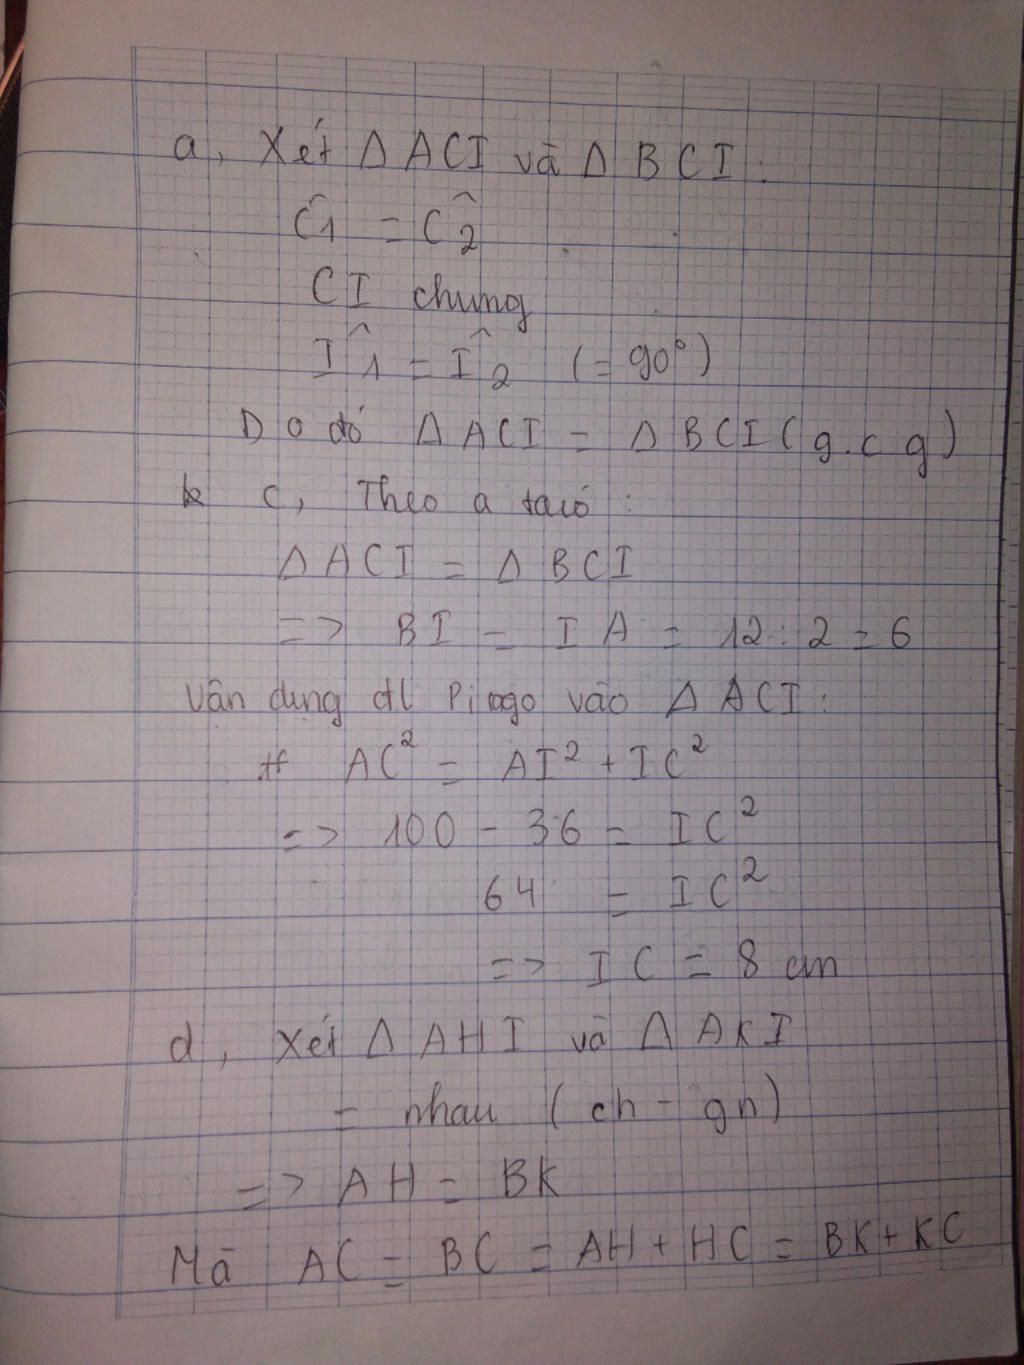 a, Xét Δ ACI và Δ BCI :
Ĉ1 = Ĉ2
CI chung
Î1 = Î2 (= 90°)
Do đó Δ ACI = Δ BCI (g.c g)
c, Theo a ta có :
Δ ACI = Δ BCI
=> BI = IA = 12 : 2 = 6
Vận dụng đl Pi tago vào Δ ACI :
AC² = AI² + IC²
=> 100 - 36 = IC²
64 = IC²
=> IC = 8 cm
d, Xét Δ AHI và Δ AKI
= nhau (ch - gn)
=> AH = BK
Mà AC = BC = AH + HC = BK + KC